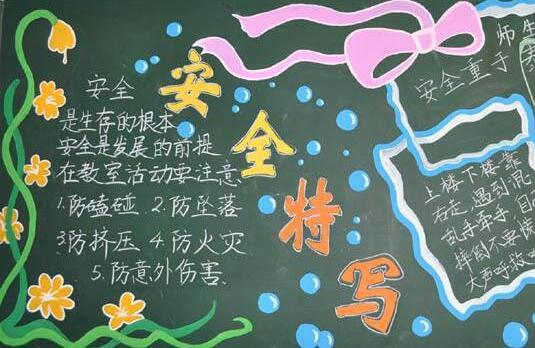 安全
是生存的根本
安全是发展的前提
在教室活动要注意
1.防磕碰 2.防坠落
3.防挤压 4.防火灾
5.防意外伤害
安全特写
师生
安全重于
上楼下楼靠
右走,遇到混
乱手牵手,
摔倒不要
大声呼救